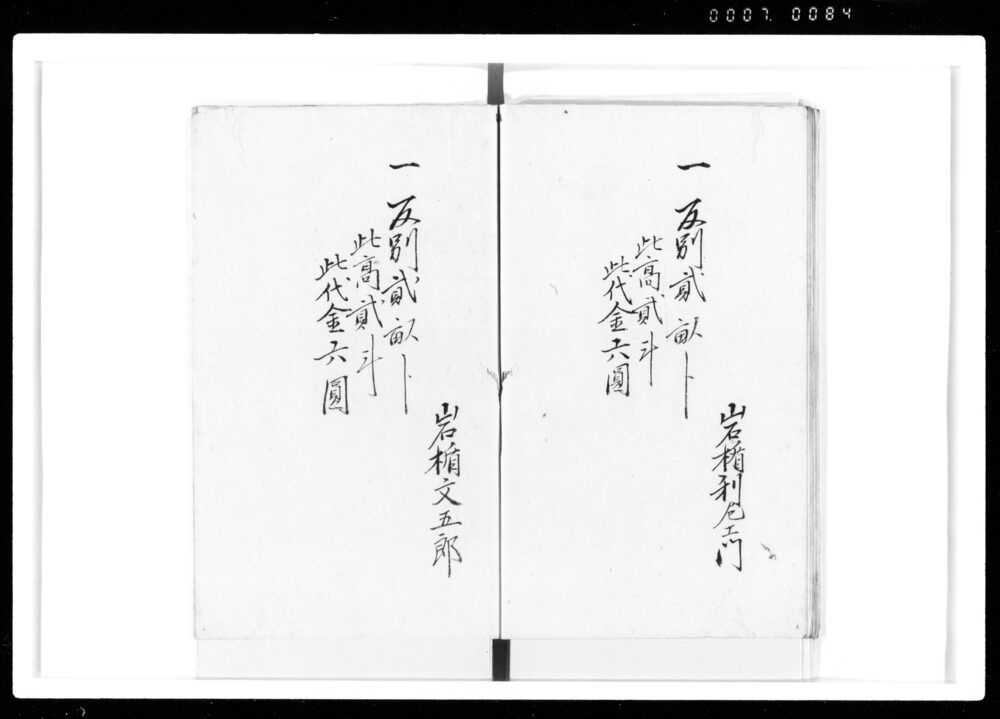 0007. 0084
岩楯利左エ門
一 反別貳畝卜
此高貳斗
此代金六圓
岩楯文五郎
一 反別貳畝卜
此高貳斗
此代金六圓